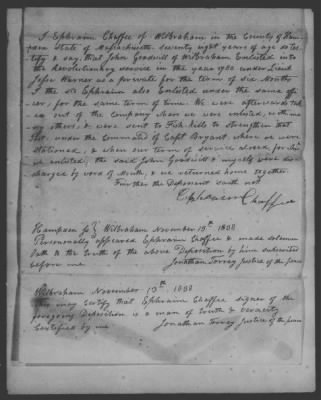 I Ephraim Chaffee of Wilbraham in the County of Ham
pden State of Massachusetts seventy eight years of age do tes
tify & say, that John Goodwill of Wilbraham Enlisted into
the Revolutionary service in the year 1780 under Lieut
Jesse Warner as a private for the term of six Months
I the sd Ephraim also Enlisted under the same offi
cer, for the same term of time. We were afterwards tak
en out of the Company when we were enlisted, with ma
ny others, & were sent to Fish kills to strengthen that
under the Command of Capt Bryant where we were
stationed, & when our term of service closed for
we enlisted, the said John Goodwill & myself were dis
charged by word of Mouth, & we returned home together.
Further the Deponent saith not
Ephraim Chaffee
Hampden ss Wilbraham November 13th 1838
Personally appeared Ephraim Chaffee & made solemn
Oath to the truth of the above Deposition by him subscribed
before me Jonathan Torrey Justice of the peace
Wilbraham November 13th 1838
may certify that Ephraim Chaffee signer of the
foregoing Deposition is a man of truth & veracity
Certified by me Jonathan Torrey Justice of the peace